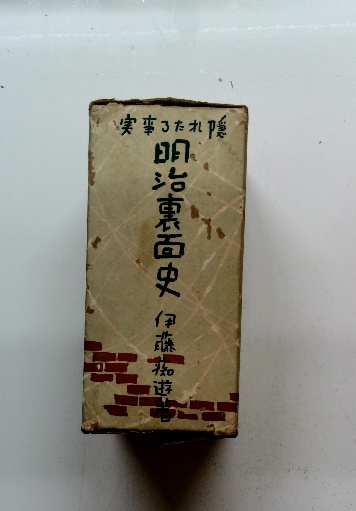 隠れたる事実
明治裏面史
伊藤痴遊著